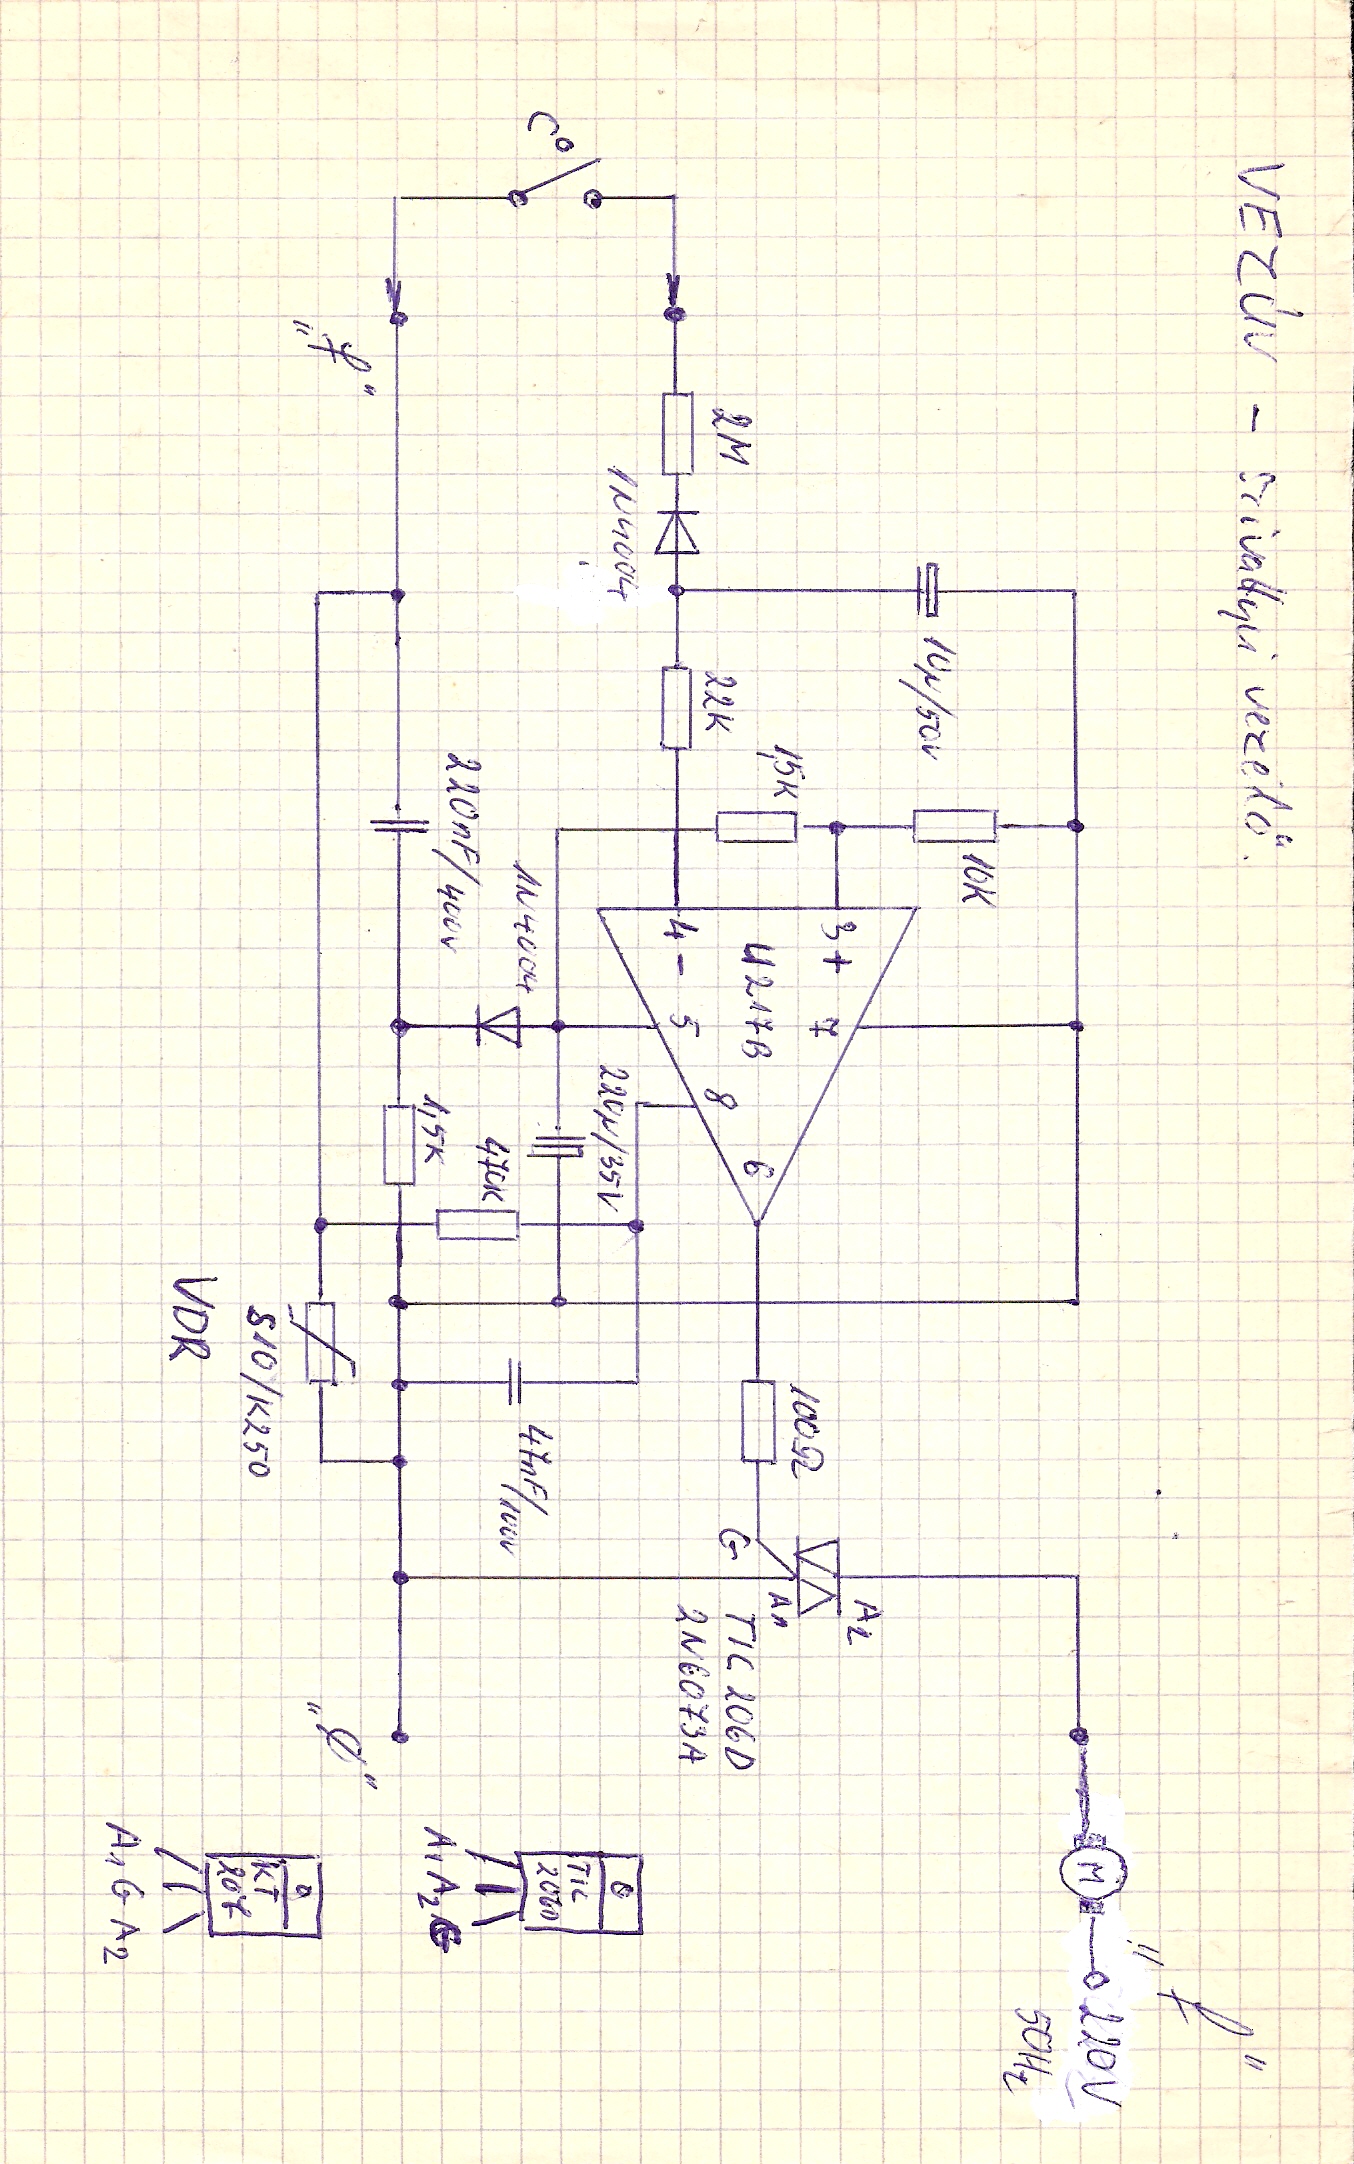 VEZÚV - szivattyú vezérlő".
C°
"f"
2M
1N4004
10µ/50V
22K
1,5K
10K
3+
4-
U217B
7
5
8
6
220nF/400V
1N4004
220µ/35V
1,5K
470K
VDR
S10/K250
47nF/100V
100Ω
G
A1
A2
TIC206D
2N6073A
"Ø"
M
220V
50Hz
"f"
TIC
206D
A1 A2 G
KT
207
A1 G A2